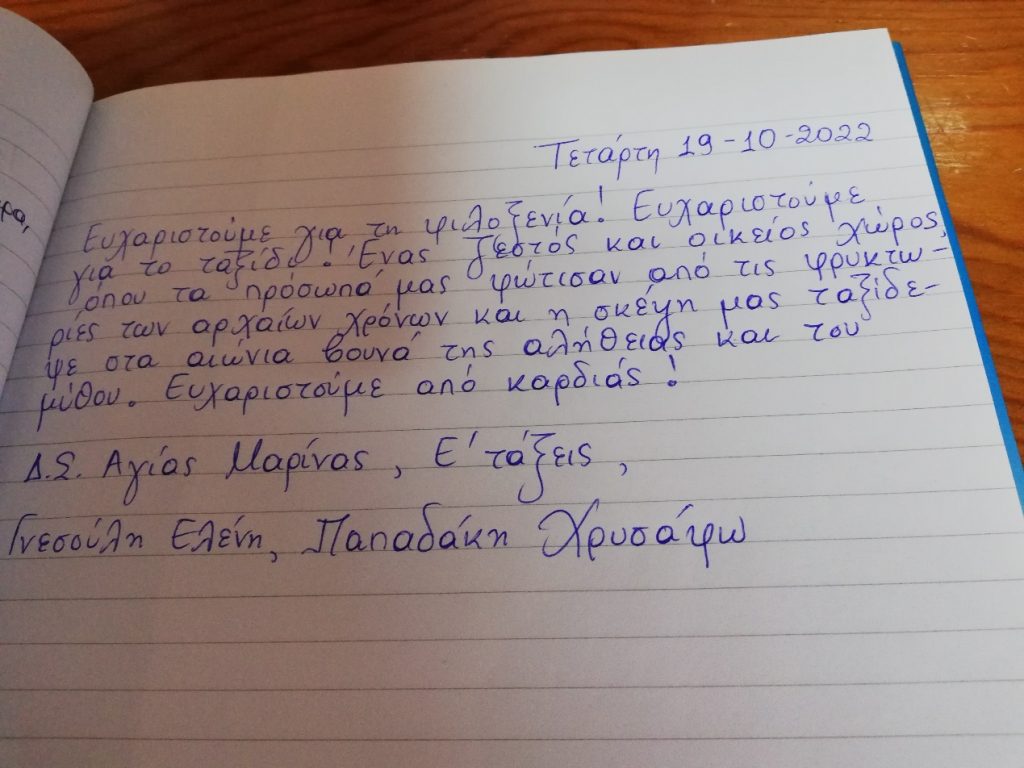 ρα,
Τετάρτη 19-10-2022
Ευχαριστούμε για τη φιλοξενία! Ευχαριστούμε
για το ταξίδι! Ένας ζεστός και οικείος χώρος,
όπου τα πρόσωπά μας φώτισαν από τις φρυκτω-
ριές των αρχαίων χρόνων και η σκέψη μας ταξίδε-
ψε στα αιώνια βουνά της αλήθειας και του
μύθου. Ευχαριστούμε από καρδιάς!
Δ.Σ. Αγίας Μαρίνας, Ε΄ τάξεις,
Γνεσούλη Ελένη, Παπαδάκη Χρυσάψω